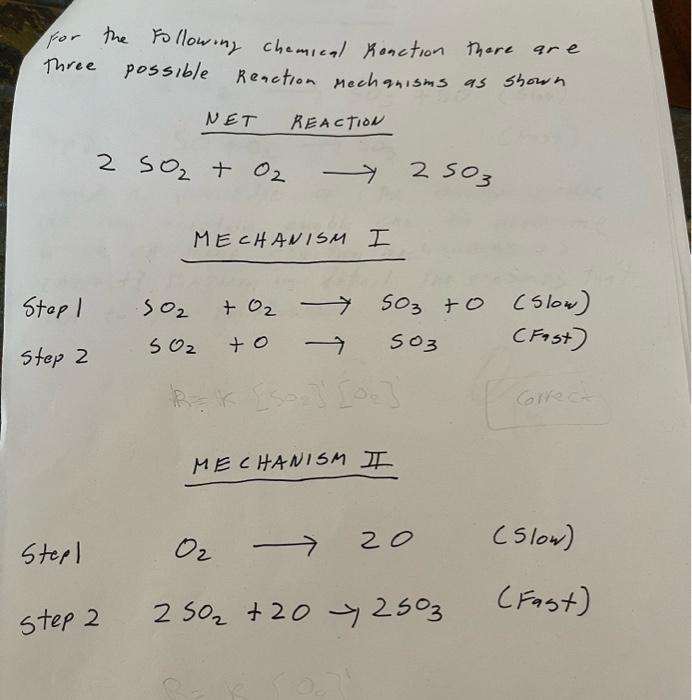 For the Following chemical Reaction there are
Three possible Reaction Mechanisms as shown
NET REACTION
2 SO₂ + O₂ → 2 SO₃
MECHANISM I
Step 1 SO₂ + O₂ → SO₃ + O (Slow)
Step 2 SO₂ + O → SO₃ (Fast)
R = K [SO₂]¹ [O₂]¹ Correct
MECHANISM II
Step 1 O₂ → 2O (Slow)
Step 2 2 SO₂ + 2O → 2SO₃ (Fast)
R = K [O₂]¹